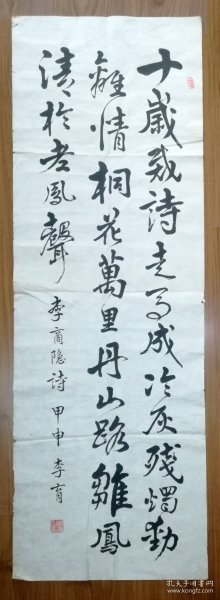 十歲裁詩走馬成冷灰殘燭動
離情桐花萬里丹山路雛鳳
清於老鳳聲 李商隐詩 甲申 李育